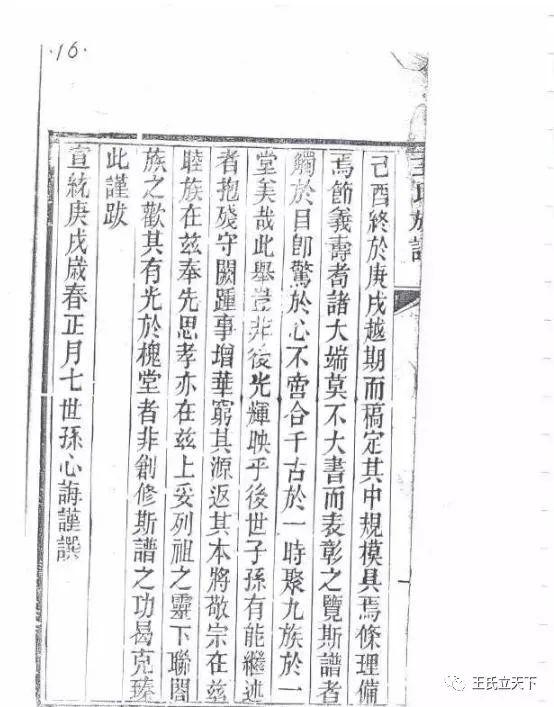 16.
王氏族譜
己酉終於庚戌越期而稿定其中規模具焉條理備
焉節義壽耇諸大端莫不大書而表彰之覽斯譜者
觸於目卽驚於心不啻合千古於一時聚九族於一
堂美哉此舉豈非後光輝映乎後世子孫有能繼述
者抱殘守闕踵事增華窮其源返其本將敬宗在兹
睦族在兹奉先思孝亦在兹上妥列祖之靈下聯閤
族之歡其有光於槐堂者非創修斯譜之功曷克臻
此謹跋
宣統庚戌歲春正月七世孫心誨謹譔
王氏立天下